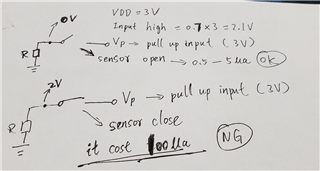 VDD = 3V
0V
Input high = 0.7 x 3 = 2.1V
R
Vp → pull up input (3V)
sensor open → 0.5 - 5 ua OK
2V
Vp → pull up input (3V)
R
sensor close
it cost 100 Ua
NG